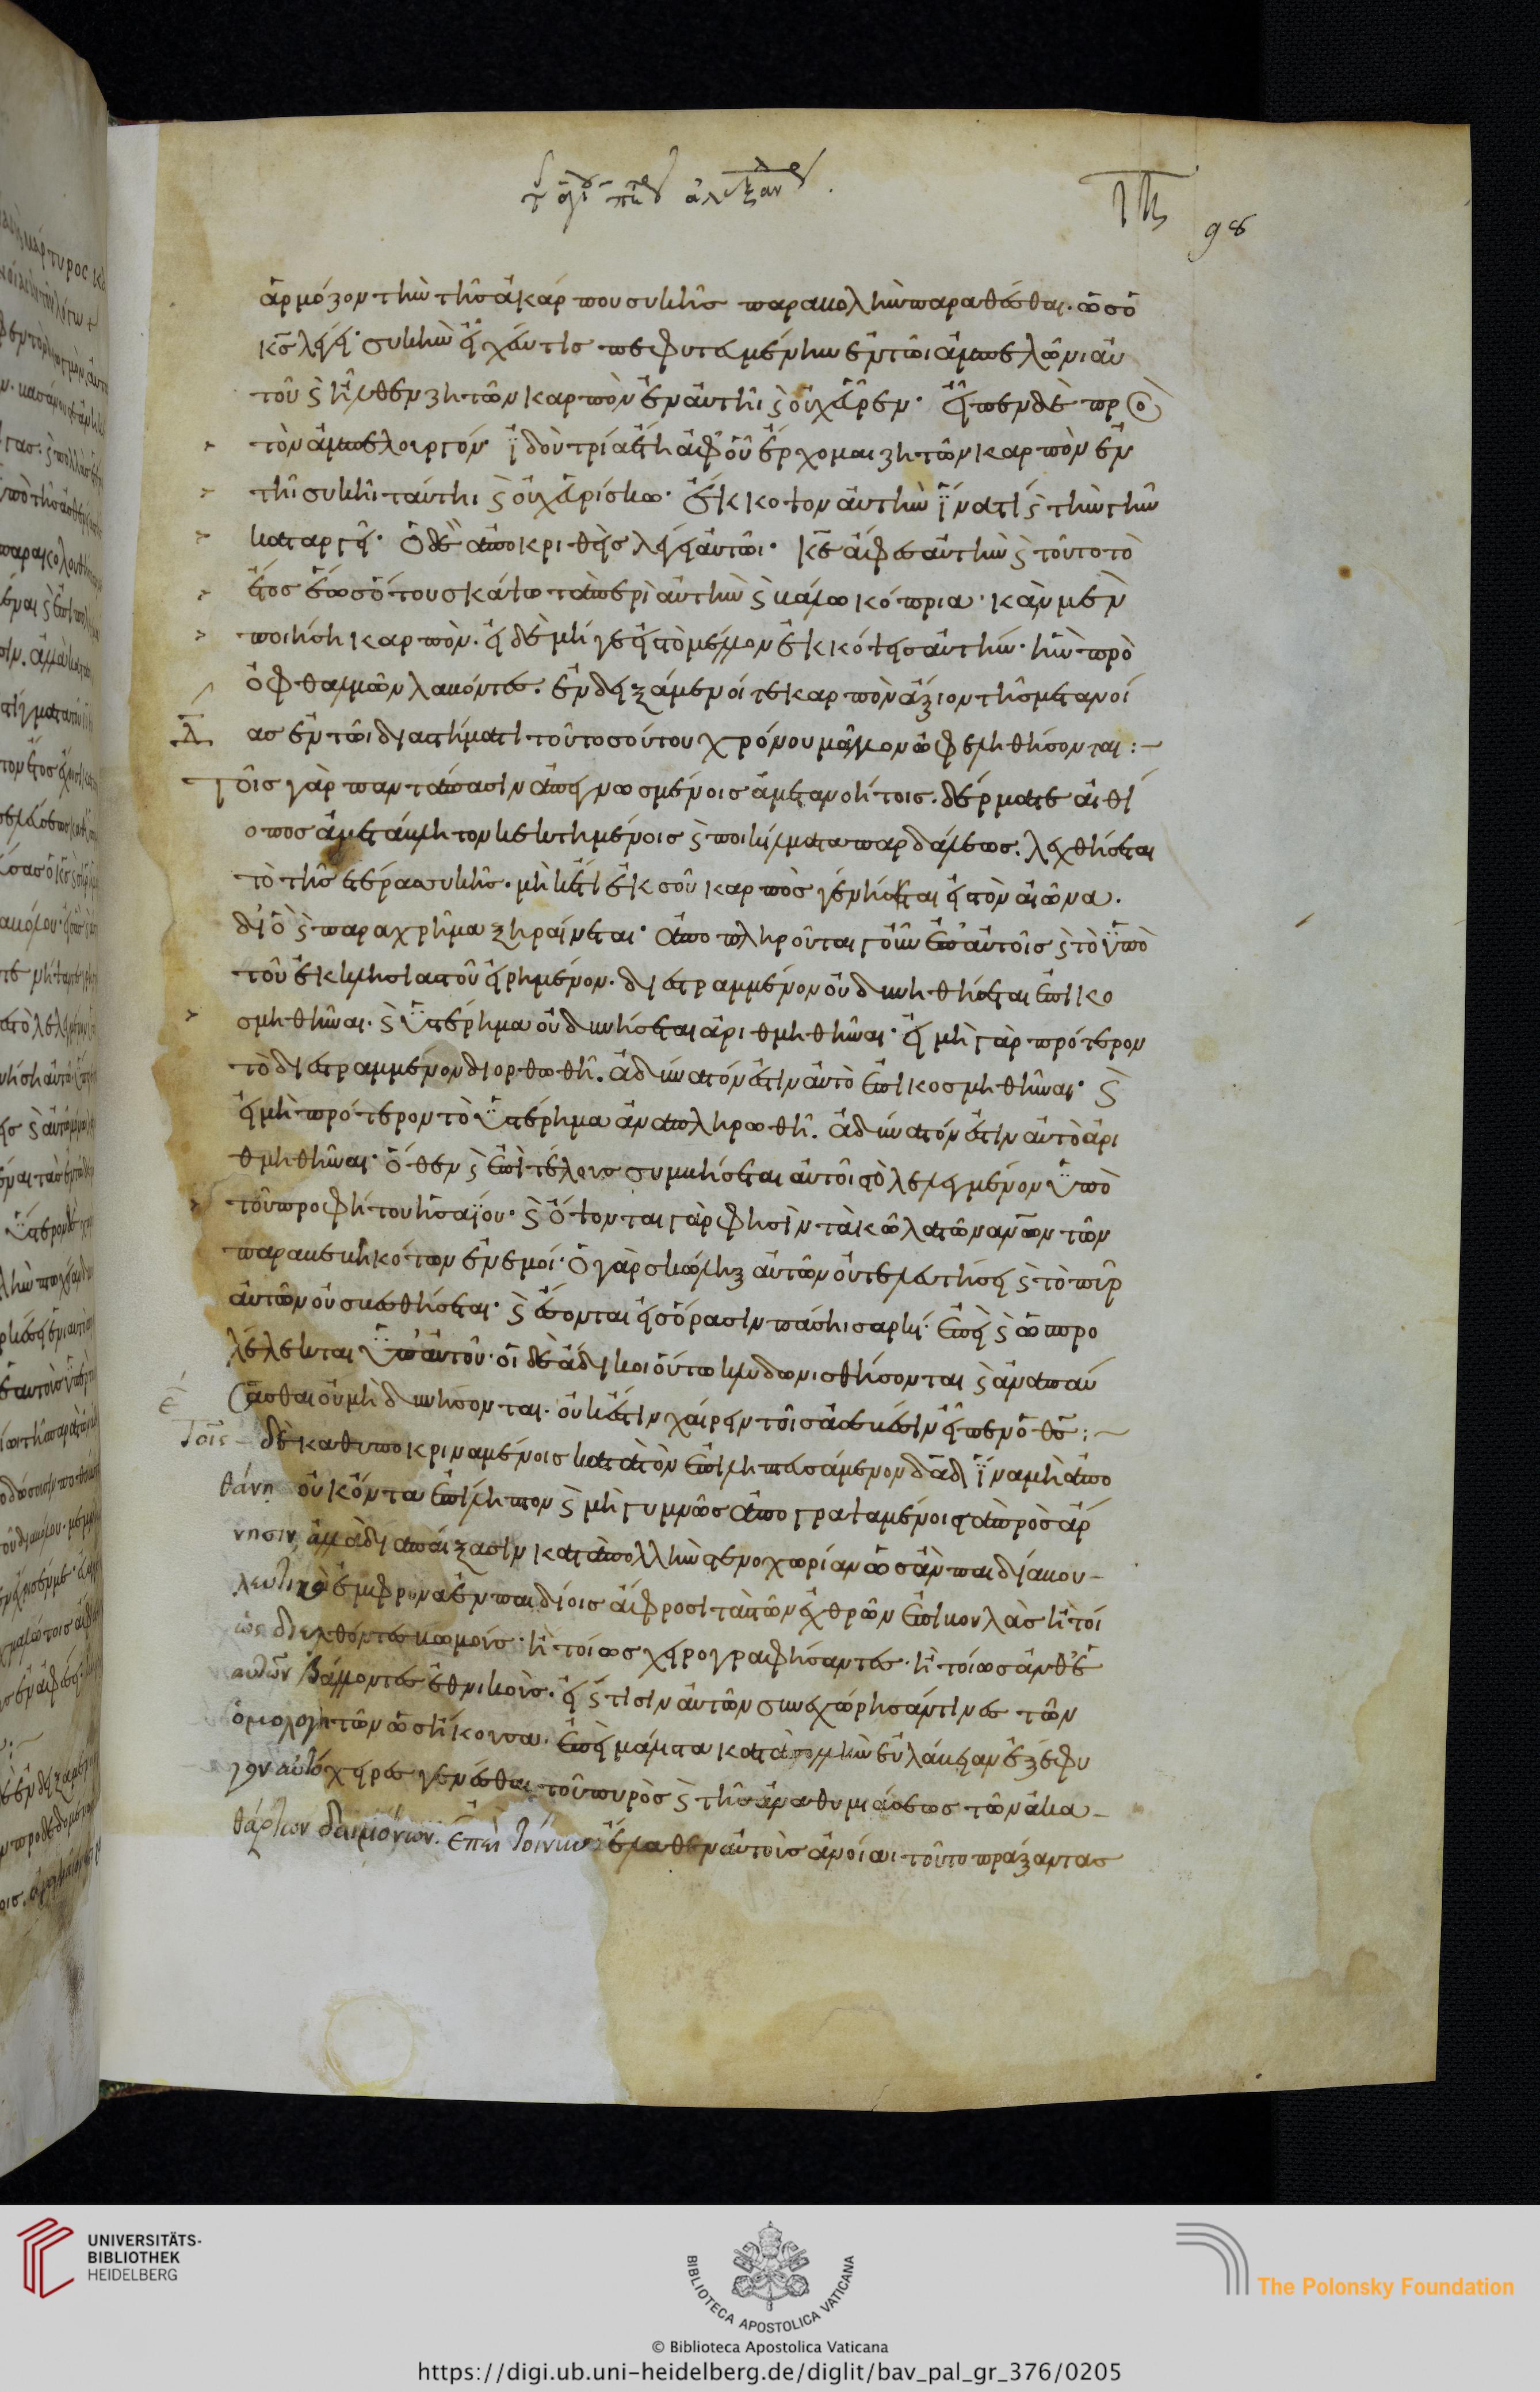 τοῦ ἁγί πέτρου ἀλεξαν
98
ἁρμόζον τὴν τῆς ἀκάρπου συκῆς παραβολὴν παραθέσθαι. ὡς ὁ
κς λέγει· συκῆν εἶχέν τις πεφυτευμένην ἐν τῶι ἀμπελῶνι αὐ
τοῦ ϛ ἦλθεν ζητῶν καρπὸν ἐν αὐτῆι ϛ οὐχ εὗρεν· εἶπεν δὲ πρὸ
τὸν ἀμπελουργόν· ϊδοὺ τρία ἔτη ἀφ' οὗ ἔρχομαι ζητῶν καρπὸν ἐν
τῆι συκῆι ταύτηι ϛ οὐχ εὑρίσκω· ἔκκοψον αὐτὴν ϊνατί ϛ τὴν γῆν
καταργεῖ· ὁ δὲ ἀποκριθεὶς λέγει αὐτῶι· κε ἄφες αὐτὴν ϛ τοῦτο τὸ
ἔτος ἕως ὅτου σκάψω τὰ περὶ αὐτὴν ϛ βάλω κόπρια· κἂν μὲν
ποιήσηι καρπὸν. εἰ δὲ μή γε εἰς τὸ μέλλον ἐκκόψεις αὐτήν· ἣν πρὸ
ὀφθαλμῶν λαβόντες. ἐνδειξάμενοί τε καρπὸν ἄξιον τῆς μετανοί
Δ
ας ἐν τῶι διαστήματι τοῦ τοσούτου χρόνου μᾶλλον ὠφεληθήσονται :~
Τοῖς γὰρ παντάπασιν ἀπεγνωσμένοις ἀμετανοήτοις. δέρμα τε αἰθί
οπος ἀμετάβλητον κεκτημένοις ϛ ποικίλματα παρδάλεως. λεχθήσεται
τὸ τῆς ἑτέρας συκῆς. μηκέτι ἐκ σοῦ καρπὸς γένηται εἰς τὸν αἰῶνα.
δι' ὃ ϛ παραχρῆμα ξηραίνεται· ἀποπληροῦται γοῦν ἐπ' αὐτοῖς ϛ τὸ ϋπὸ
τοῦ ἐκκλησιαστοῦ εἰρημένον. διεστραμμένον οὐ δυνηθήσεται ἐπικο
σμηθῆναι. ϛ ϋστέρημα οὐ δυνήσεται ἀριθμηθῆναι· εἰ μὴ γὰρ πρότερον
τὸ διεστραμμένον διορθωθῆ. ἀδύνατόν ἐστιν αὐτὸ ἐπικοσμηθῆναι· ϛ
εἰ μὴ πρότερον τὸ ϋστέρημα ἀναπληρωθῆ. ἀδύνατόν ἐστιν αὐτὸ ἀρι
θμηθῆναι· ὅθεν ϛ ἐπὶ τέλους συμβήσεται αὐτοῖς τὸ λελεγμένον ϋπὸ
τοῦ προφήτου ἠσαΐου· ϛ ὄψονται γὰρ φησὶν τὰ κῶλα τῶν ανων τῶν
παραβεβηκότων ἐν ἐμοί· ὁ γὰρ σκώληξ αὐτῶν οὐ τελευτήσει ϛ τὸ πῦρ
αὐτῶν οὐ σβεσθήσεται· ϛ ἔσονται εἰς ὅρασιν πάσηι σαρκί· ἐπεὶ ϛ ὡς προ
λέλεκται ϋπ' αὐτοῦ· οἱ δὲ ἄδικοι οὕτω κλυδωνισθήσονται ϛ ἀναπαύ
σασθαι οὐ μὴ δυνήσονται. οὐκ ἔστιν χαίρειν τοῖς ἀσεβέσιν εἶπεν ὁ θς :~
Ε
Τοῖς δὲ καθυποκριναμένοις κατὰ τὸν ἐπιληπτευσάμενον δαδ ϊνα μὴ ἀπο
θάνη οὐκ ὄντα ἐπίληπτον ϛ μὴ γυμνῶς ἀπογραψαμένοις τὰ πρὸς ἄρ
νησιν, ἀλλὰ διαπαίξασιν κατὰ πολλὴν στενοχωρίαν ὡσὰν παιδία βου-
λευτικὰ ἔμφρονα ἐν παιδίοις ἄφροσι τὰς τῶν ἐχθρῶν ἐπιβουλὰς ἤτοι
ὡς διελθόντες βωμούς· ἤτοι ὡς χειρογραφήσαντες. ἤτοι ὡς ἀνθ' ἑ
αυτῶν βάλλοντες ἐθνικοὺς. εἰ ϛ τισὶν αὐτῶν συνεχώρησάν τινες τῶν
ὁμολογητῶν ὡς ἤκουσα. ἐπεὶ μάλιστα κατὰ πολλὴν εὐλάβειαν ἐξέφυ
γον αὐτόχειρες γενέσθαι τοῦ πυρὸς ϛ τῆς ἀναθυμιάσεως τῶν ἀκα-
θάρτων δαιμόνιων. ἐπεὶ τοίνυν ἔλαθεν αὐτοὺς ἀνοίαι τοῦτο πράξαντας
UNIVERSITÄTS-
BIBLIOTHEK
HEIDELBERG
BIBLIOTECA APOSTOLICA VATICANA
© Biblioteca Apostolica Vaticana
The Polonsky Foundation
https://digi.ub.uni-heidelberg.de/diglit/bav_pal_gr_376/0205